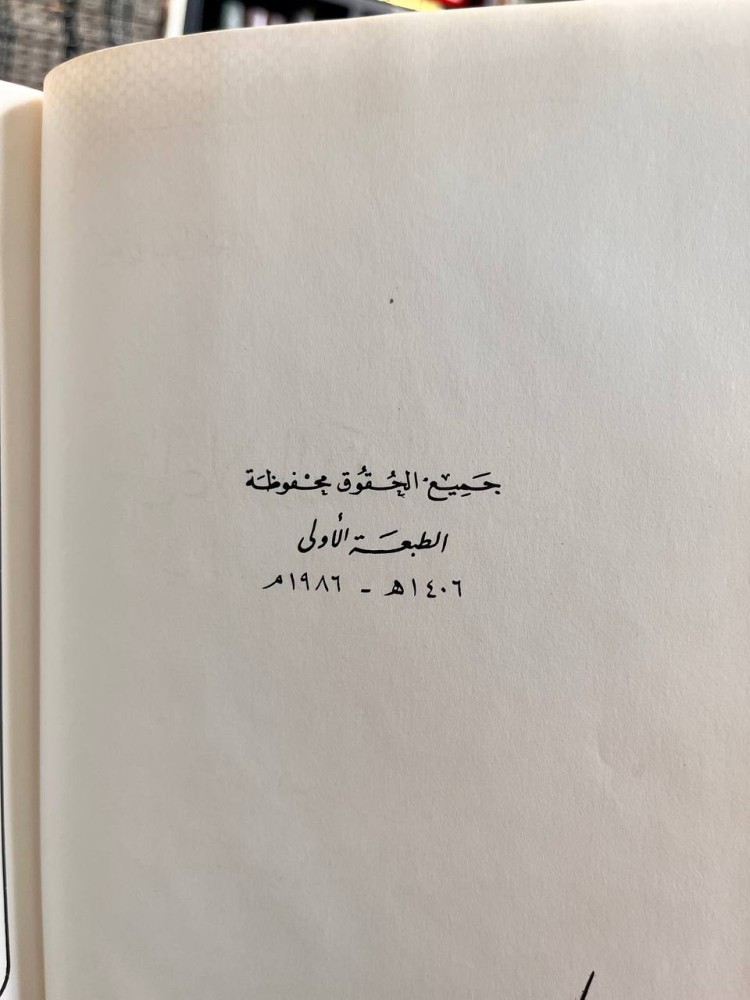 جَمِيعُ الحُقُوق مَحْفوظَة
الطبعَة الأولى
١٤٠٦هـ - ١٩٨٦م